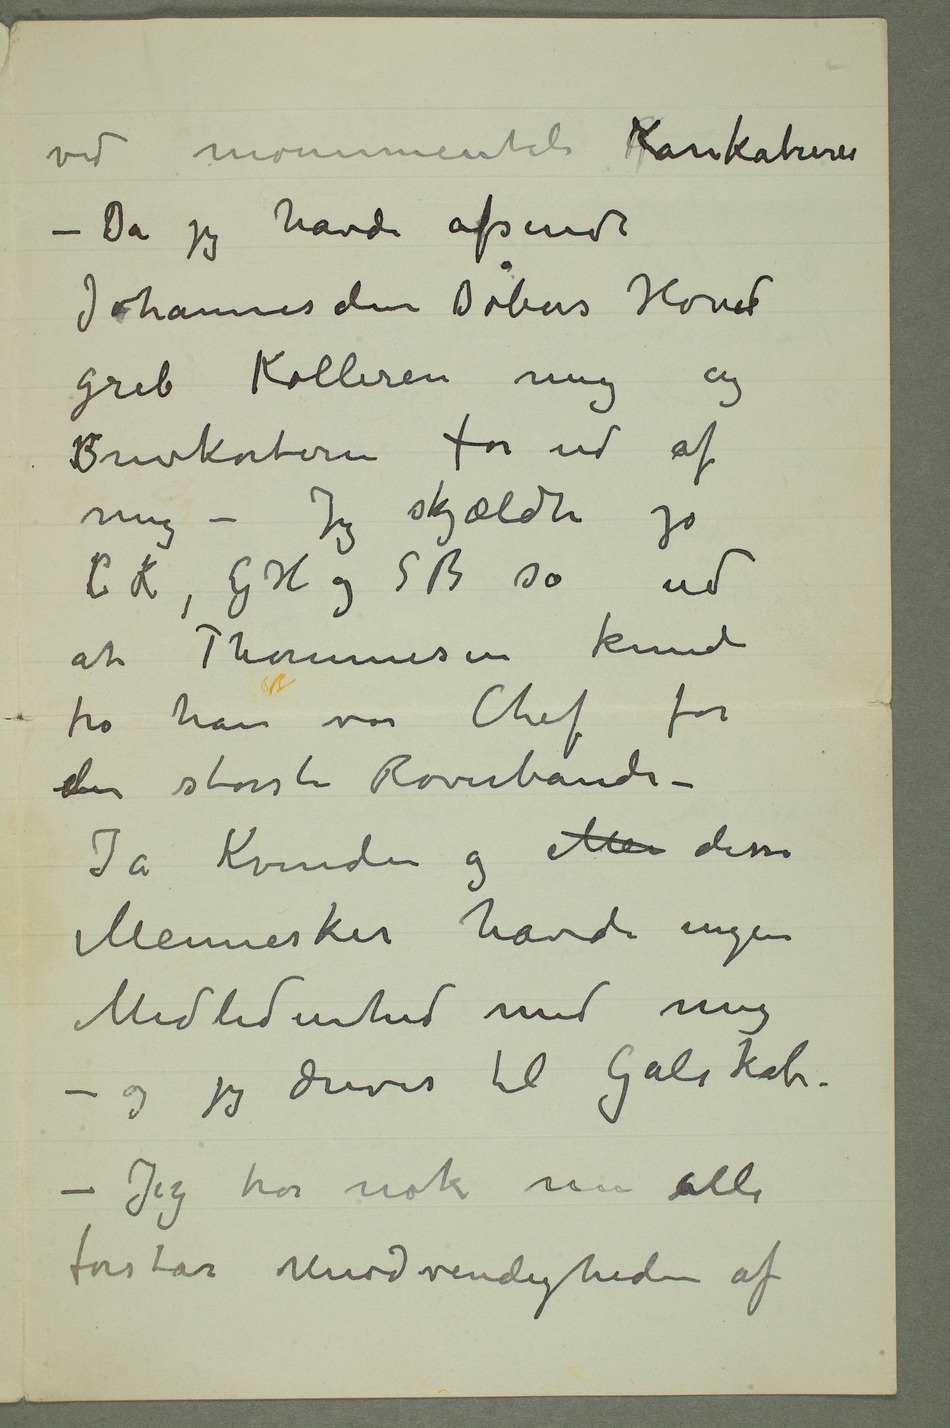 ved monumentale Karikaturer
– Da jeg havde afsendt
Johannes den Døbers Hoved
greb Kolleren mig og
Brevkortene for ud af
mig – Jeg skjældte jo
CK, GH og SB så ud
at Thommesen kunde
SB
tro han var Chef for
den største Røverbande –
Ja Kvinden og Men disse
Mennesker havde ingen
Medlidenhed med mig
– og jeg dreves til Galskab.
– Jeg tror nok nu alle
forstår Nødvendigheden af